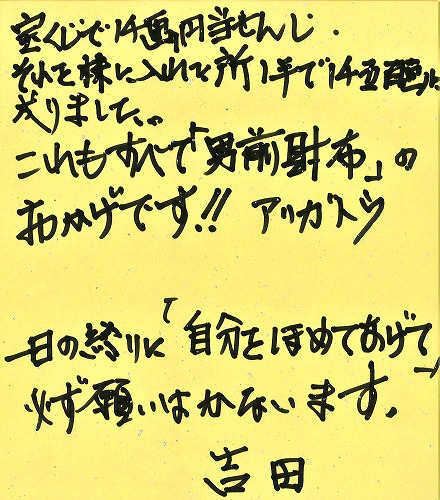 宝くじで1千萬円当せんし.
それを株に入れて所1年で1千五百萬に
成りました。
これもすべて「男前財布」の
おかげです!! アリガトウ
一日の終りに「自分をほめてあげて」
必ず願いはかないます。
吉田